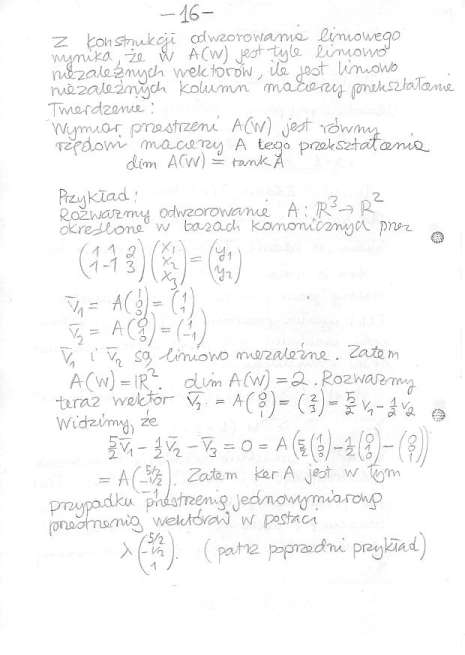 -16-
Z konstrukcji odwzorowania liniowego
wynika, że w A(W) jest tyle liniowo
niezależnych wektorów, ile jest liniowo
niezależnych kolumn macierzy przekształcenia
Twierdzenie:
Wymiar przestrzeni A(W) jest równy
rzędowi macierzy A tego przekształcenia
dim A(W) = rank A
Przykład:
Rozważmy odwzorowanie A: ℝ³ → ℝ²
określone w bazach kanonicznych przez
(1 1 2; 1 -1 3)(x₁; x₂; x₃) = (y₁; y₂)
v̄₁ = A(1; 0; 0) = (1; 1)
v̄₂ = A(0; 1; 0) = (1; -1)
v̄₁ i v̄₂ są liniowo niezależne. Zatem
A(W) = ℝ². dim A(W) = 2. Rozważmy
teraz wektor v̄₃ = A(0; 0; 1) = (2; 3) = 5/2 v₁ - 1/2 v₂
Widzimy, że
5/2 v̄₁ - 1/2 v̄₂ - v̄₃ = 0 = A(5/2 (1; 0; 0) - 1/2 (0; 1; 0) - (0; 0; 1))
= A(5/2; -1/2; -1). Zatem ker A jest w tym
przypadku przestrzenią jednowymiarową
przestrzenią wektorów w postaci
λ(5/2; -1/2; 1). (patrz poprzedni przykład)